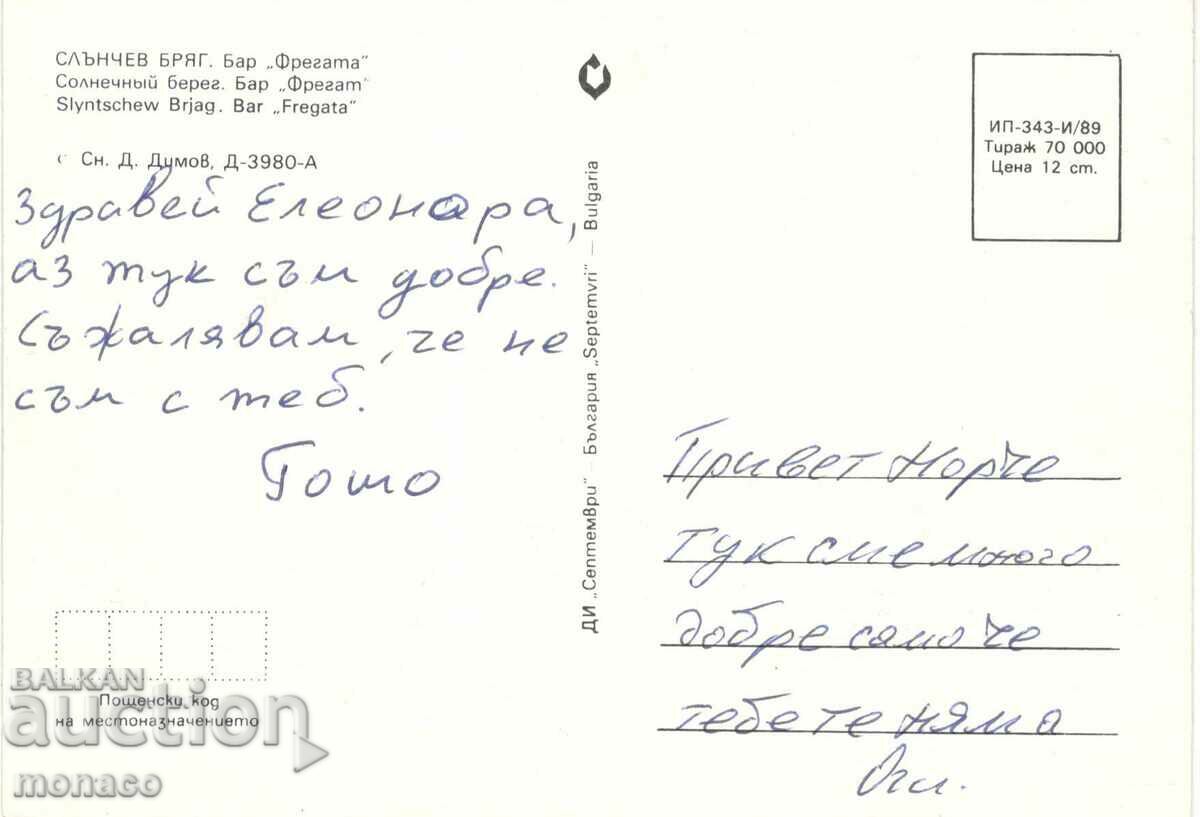 СЛЪНЧЕВ БРЯГ. Бар „Фрегата"
Солнечный берег. Бар „Фрегат"
Slyntschew Brjag. Bar „Fregata"
Сн. Д. Димов, Д-3980-А
Здравей Елеонора,
аз тук съм добре.
Съжалявам, че не
съм с теб.
Гошо
Пощенски код
на местоназначението
ДИ „Септември" — България „Septemvri" — Bulgaria
ИП-343-И/89
Тираж 70 000
Цена 12 ст.
Привет Норче
Тук сме много
добре само че
тебе те няма
Оги.
BALKAN
auction
monaco